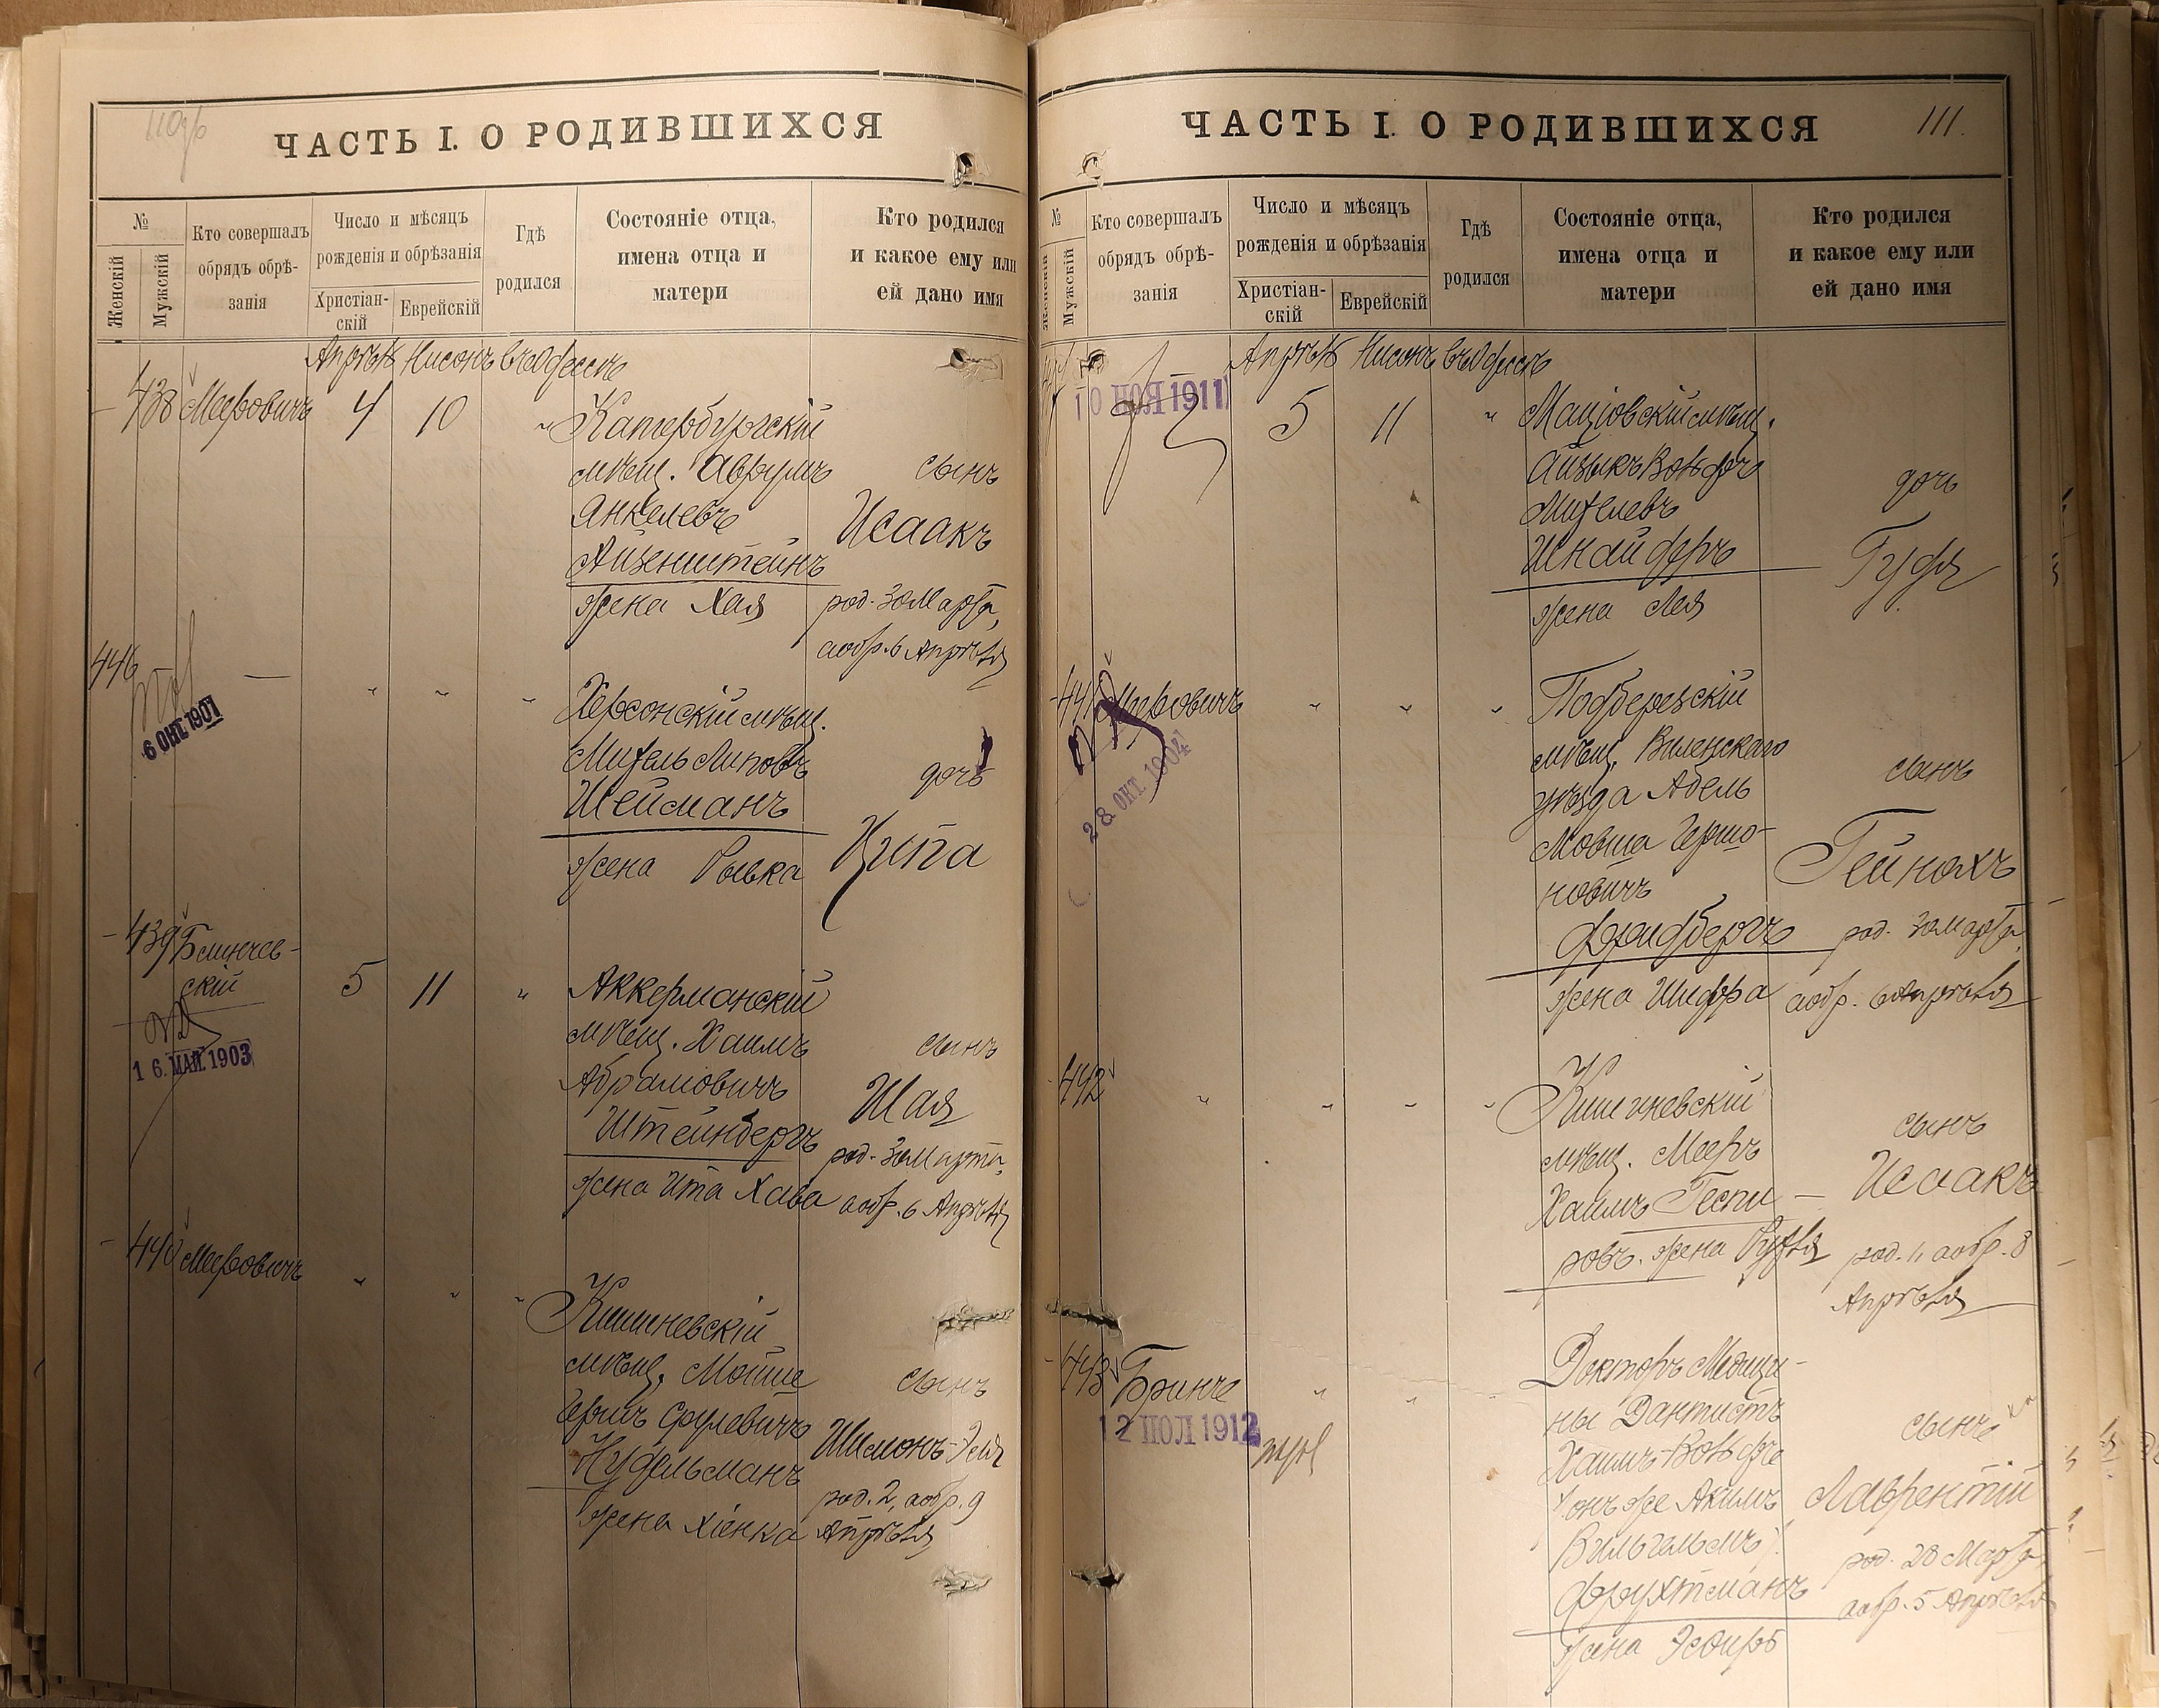 ЧАСТЬ I. О РОДИВШИХСЯ
№
Женскій
Мужскій
Кто совершалъ
обрядъ обрѣ-
занія
Число и мѣсяцъ
рожденія и обрѣзанія
Христіан-
скій
Еврейскій
Гдѣ
родился
Состояніе отца,
имена отца и
матери
Кто родился
и какое ему или
ей дано имя
Апрѣль Нисонъ въ Одессѣ
438 Мееровичъ 4 10 " Катербургскій
мѣщ. Аврумъ сынъ
Янкелевъ Исаакъ
Айзенштейнъ
жена Хая род. 30 Марта,
а обр. 6 Апрѣля
446 — " " " Херсонскій мѣщ.
6 ОКТ. 1907
Михель Липовъ дочь
Шейманъ
жена Рывка Ципа
439 Блинчев-
скій 5 11 " Аккерманскій
16. МАЙ. 1903
мѣщ. Хаимъ сынъ
Абрамовичъ Шая
Штейнбергъ
род. 30 Марта,
жена Ита Хава а обр. 6 Апрѣля
440 Мееровичъ " " " Кишиневскій
мѣщ. Мойше сынъ
Гершъ Срулевичъ Шимонъ-
Нудельманъ
род. 2, а обр. 9
жена Хіенка Апрѣля
ЧАСТЬ I. О РОДИВШИХСЯ 111.
№
Женскій
Мужскій
Кто совершалъ
обрядъ обрѣ-
занія
Число и мѣсяцъ
рожденія и обрѣзанія
Христіан-
скій
Еврейскій
Гдѣ
родился
Состояніе отца,
имена отца и
матери
Кто родился
и какое ему или
ей дано имя
Апрѣль Нисонъ въ Одессѣ
10 НОЯ 1911
5 11 " Маціовскій мѣщ.
Айзыкъ Вольфъ дочь
Михелевъ
Шнайдеръ Гудя
жена Лея
441 Мееровичъ " " " Подберезскій
28. ОКТ. 1904
мѣщ. Виленскаго сынъ
уѣзда Абель
Мовша Гершо-
новичъ Гейнахъ
Фридбергъ род. 30 Марта
жена Шифра а обр. 6 Апрѣля
442 " " " " Кишиневскій
сынъ
мѣщ. Мееръ Исаакъ
Хаимъ Гесни—
ровъ. жена Рухля род. 1, а обр. 8
Апрѣля
443 Бринче " " " Докторъ Медици-
12 ІЮЛ 1912
ны Дантистъ сынъ
Хаимъ-Вольфъ
онъ же Акимъ Лаврентій
Вильгельмъ
род. 28 Марта
Фрухтманъ а обр. 5 Апрѣля
жена Эсфирь